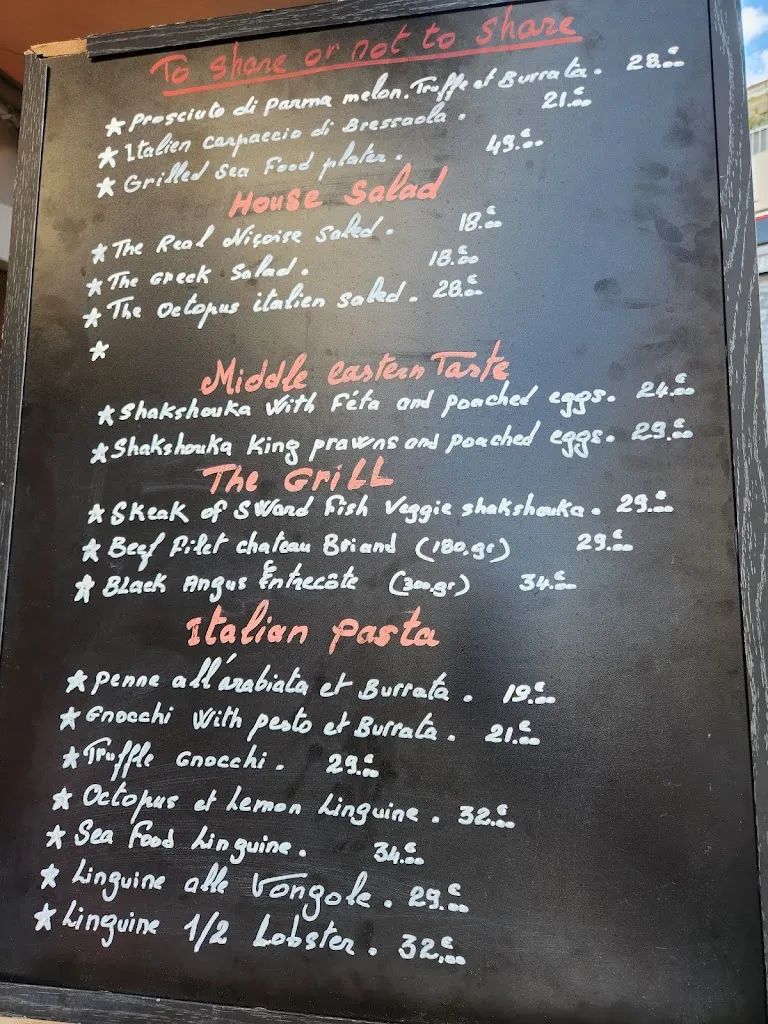 To share or not to share
★ Prosciuto di Parma melon. Truffe et Burrata. 28.€00
★ Italian carpaccio di Bressaola. 21.€00
★ Grilled Sea Food plater. 49.€00
House Salad
★ The Real Niçoise Saled. 18.€00
★ The Greek Salad. 18.€00
★ The Octopus italien saled. 28.€00
★
Middle eastern Taste
★ Shakshouka With Féta and poached eggs. 24.€00
★ Shakshouka King prawns and poached eggs. 29.€00
The Grill
★ Skeak of SWord Fish Veggie shakshouka. 29.€00
★ Beef Filet chateau Briand (180.gr) 29.€00
★ Black Angus Entrecôte (300.gr) 34.€00
Italian pasta
★ Penne all'arabiata et Burrata. 19.€00
★ Gnocchi With pesto et Burrata. 21.€00
★ Truffle Gnocchi. 29.€00
★ Octopus et Lemon Linguine. 32.€00
★ Sea Food Linguine. 34.€00
★ Linguine alle Vongole. 29.€00
★ Linguine 1/2 Lobster. 32.€00